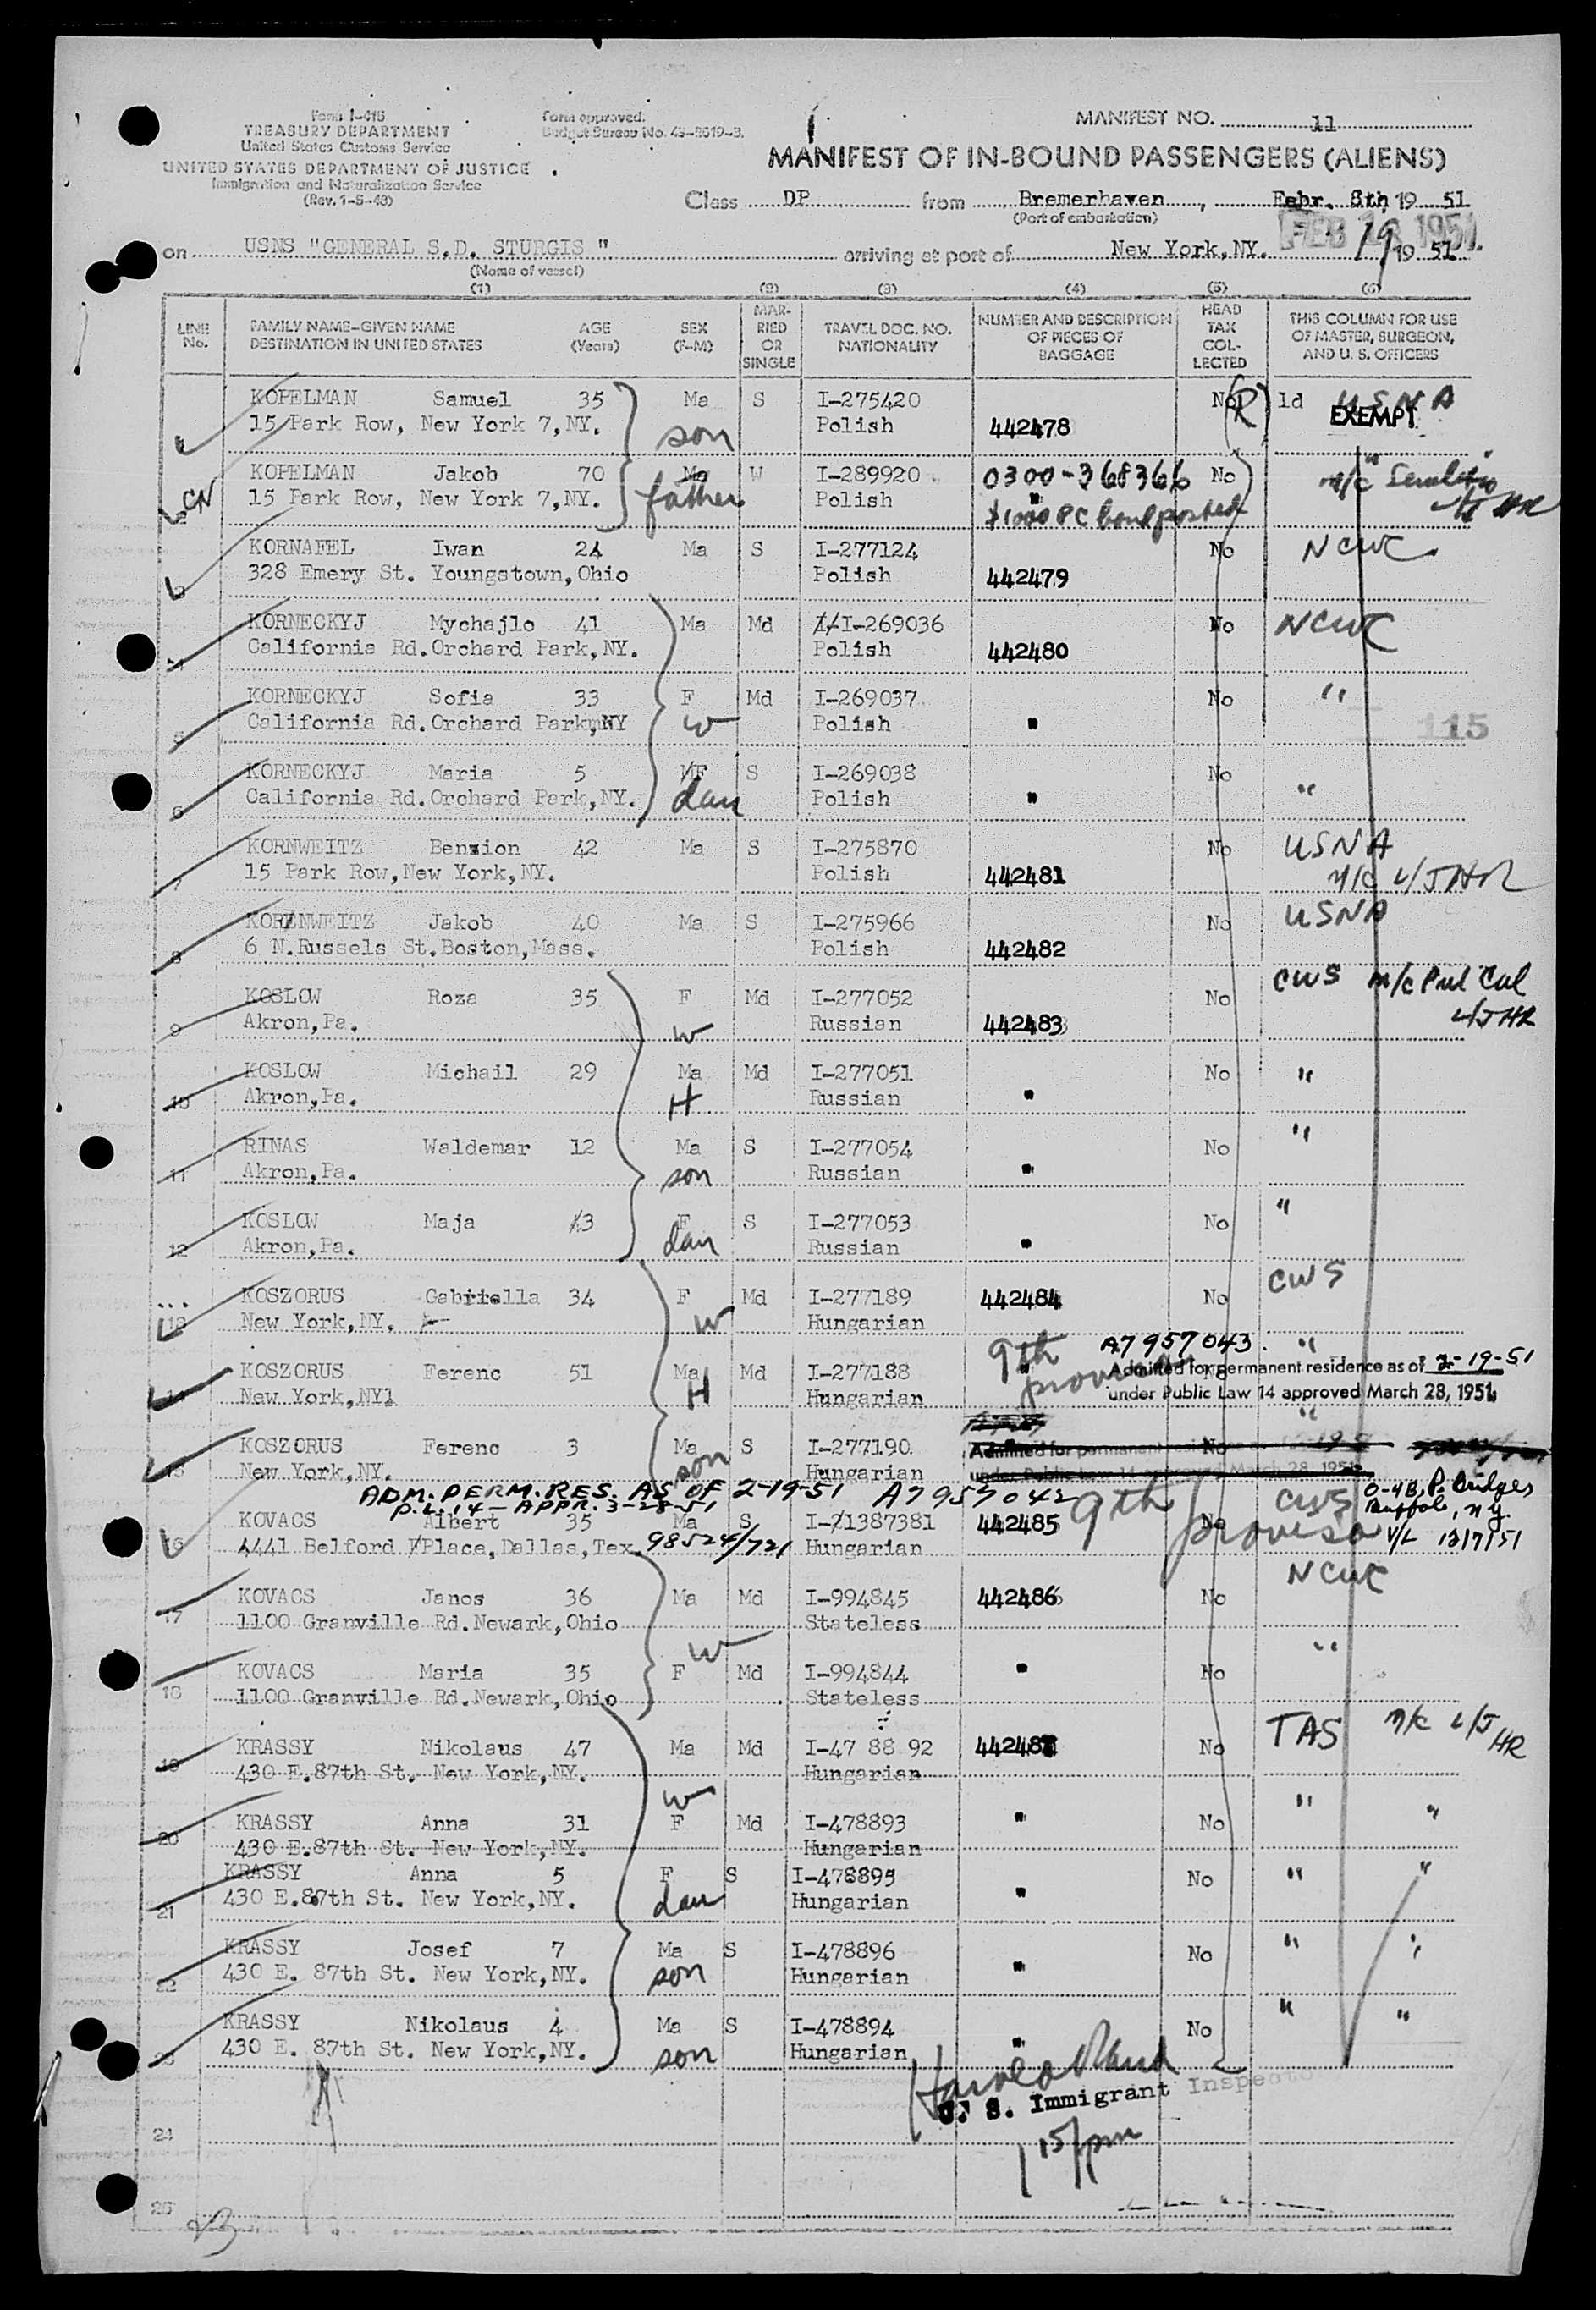 Form I-415
TREASURY DEPARTMENT
United States Customs Service
UNITED STATES DEPARTMENT OF JUSTICE
Immigration and Naturalization Service
(Rev. 1-5-48)
Form approved.
Budget Bureau No. 43-R019-3.
MANIFEST NO. 11
MANIFEST OF IN-BOUND PASSENGERS (ALIENS)
Class DP from Bremerhaven, Febr. 8th 19 51
(Port of embarkation)
on USNS "GENERAL S.D. STURGIS " arriving at port of New York,NY. FEB 19 1951
(Name of vessel)
(1) (2) (3) (4) (5) (6)
LINE No. FAMILY NAME-GIVEN NAME DESTINATION IN UNITED STATES AGE (Years) SEX (F-M) MARRIED OR SINGLE TRAVEL DOC. NO. NATIONALITY NUMBER AND DESCRIPTION OF PIECES OF BAGGAGE HEAD TAX COLLECTED THIS COLUMN FOR USE OF MASTER, SURGEON, AND U. S. OFFICERS
KOPELMAN Samuel 35 Ma S I-275420 No R 1d USNA
15 Park Row, New York 7,NY. son Polish 442478 EXEMPT
KOPELMAN Jakob 70 Ma W I-289920 0300-368366 No " m/c
CN 15 Park Row, New York 7,NY. father Polish " $1000 PC bond posted HR
KORNAFEL Iwan 24 Ma S I-277124 No NCWC
3 328 Emery St. Youngstown,Ohio Polish 442479
KORNECKYJ Mychajlo 41 Ma Md I-269036 No NCWC
4 California Rd.Orchard Park,NY. Polish 442480
KORNECKYJ Sofia 33 F Md I-269037 No "
5 California Rd.Orchard Park,NY w Polish " 115
KORNECKYJ Maria 5 F S I-269038 No "
6 California Rd.Orchard Park,NY. dau Polish "
KORNWEITZ Benzion 42 Ma S I-275870 No USNA
7 15 Park Row,New York,NY. Polish 442481 m/c L/J HR
KORNWEITZ Jakob 40 Ma S I-275966 No USNA
8 6 N.Russels St.Boston,Mass. Polish 442482
KOSLOW Roza 35 F Md I-277052 No CWS m/c
9 Akron,Pa. w Russian 442483 L/J HR
KOSLOW Michail 29 Ma Md I-277051 No "
10 Akron,Pa. H Russian "
RINAS Waldemar 12 Ma S I-277054 No "
11 Akron,Pa. son Russian "
KOSLOW Maja 3 F S I-277053 No "
12 Akron,Pa. dau Russian "
KOSZORUS Gabriella 34 F Md I-277189 442484 No CWS
13 New York,NY. w Hungarian
9th proviso A7957043 "
KOSZORUS Ferenc 51 Ma Md I-277188 Admitted for permanent residence as of 2-19-51
14 New York,NY1 H Hungarian under Public Law 14 approved March 28, 1951.
KOSZORUS Ferenc 3 Ma S I-277190 Admitted for permanent residence as of No "
15 New York,NY. son Hungarian under Public Law 14 approved March 28, 1951.
ADM. PERM. RES. AS OF 2-19-51 A7957042 9th proviso
P.L. 14 - APPR. 3-28-51
KOVACS Albert 35 Ma S I-1387381 442485 No CWS O-4B, P. Bridges
Buffalo, N.Y.
16 4441 Belford Place,Dallas,Tex. 98524/721 Hungarian V/L 12/7/51
KOVACS Janos 36 Ma Md I-994845 442486 No NCWC
17 1100 Granville Rd.Newark,Ohio Stateless
KOVACS Maria 35 w F Md I-994844 " No "
18 1100 Granville Rd.Newark,Ohio Stateless
KRASSY Nikolaus 47 Ma Md I-47 88 92 442487 No TAS m/c L/J HR
19 430 E.87th St. New York,NY. Hungarian
KRASSY Anna 31 w F Md I-478893 " No " "
20 430 E.87th St. New York,NY. Hungarian
KRASSY Anna 5 F S I-478895 No " "
21 430 E.87th St. New York,NY. dau Hungarian "
KRASSY Josef 7 Ma S I-478896 No " "
22 430 E. 87th St. New York,NY. son Hungarian "
KRASSY Nikolaus 4 Ma S I-478894 No " "
23 430 E. 87th St. New York,NY. son Hungarian "
Harold Rand
U. S. Immigrant Inspector
24
1 15/pm
25